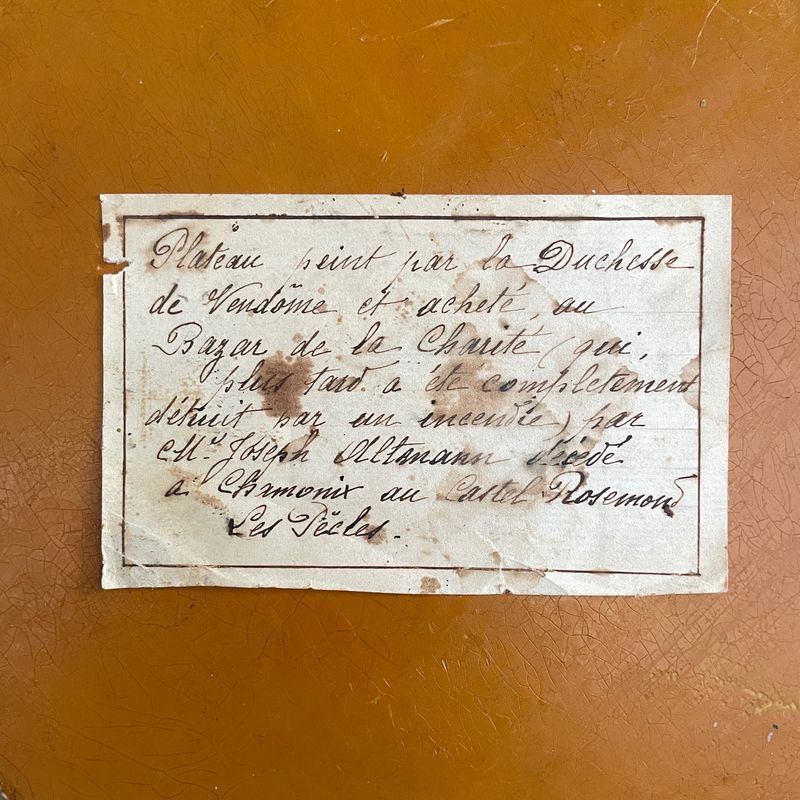 Plateau peint par la Duchesse
de Vendôme et acheté, au
Bazar de la Charité (qui,
plus tard a été completement
détruit par un incendie) par
Mr Joseph Altmann décédé
à Chamonix au Castel Rosemond
Les Pècles.